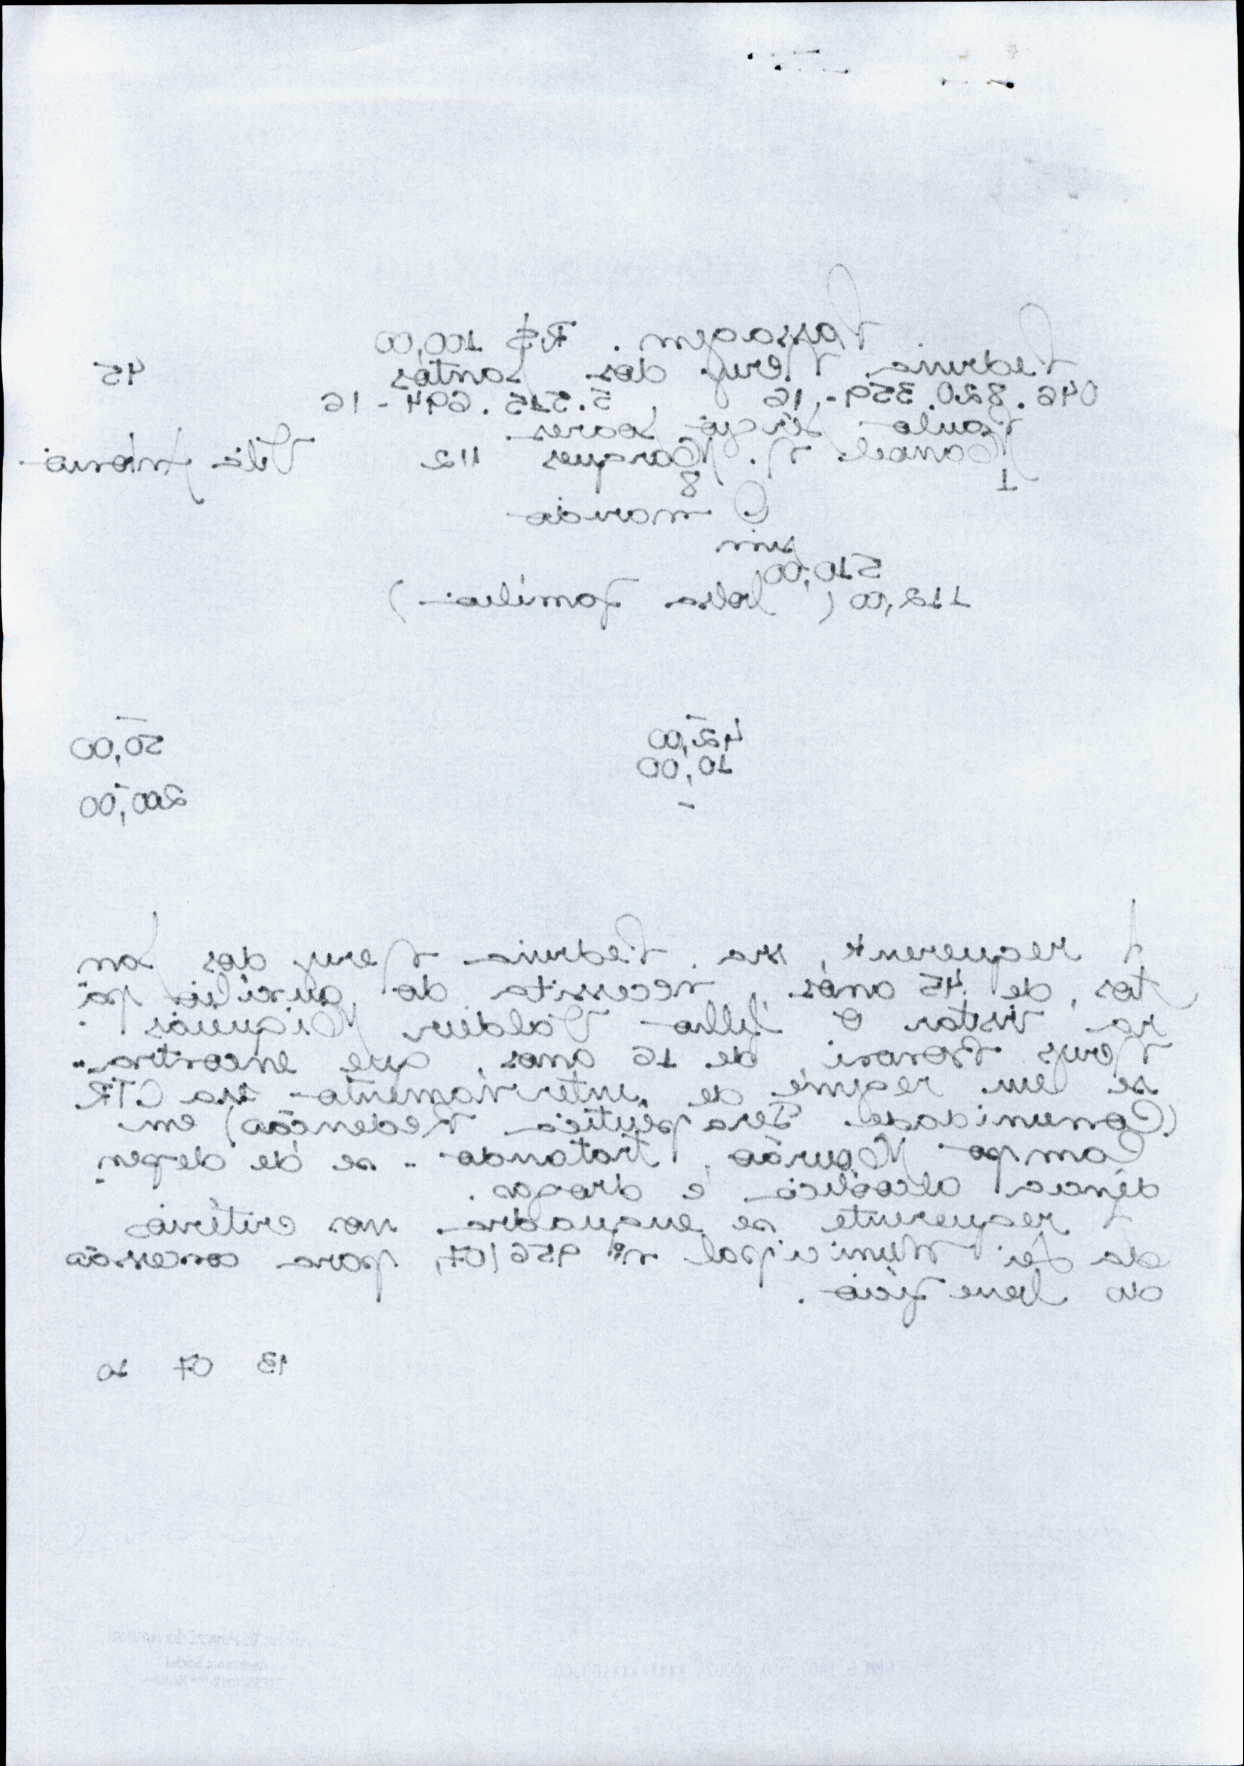 Passagem. R$ 100,00
Pedrina Neuy dos Santos 45
046.820.359-16 5.515.694-16
Paulo Sérgio Soares
Manoel N. Marques 112 Vila Antonio
1 8
O marido
sim
510,00
112,00 (bolsa família)
42,00 50,00
10,00
- 200,00
A requerente, sra. Pedrina Neuy dos San
tos, de 45 anos, necessita do auxílio pa
ra visitar o filho Valdeir
Neuys de 16 anos, que encontra-
se em regime de internamento na CTR
(Comunidade Terapêutica Redenção) em
Campo Mourão, tratando-se de depen-
dência alcoólica e drogas.
A requerente se enquadra nos critérios
da Lei Municipal nº 956/07, para concessão
do benefício.
13 07 10